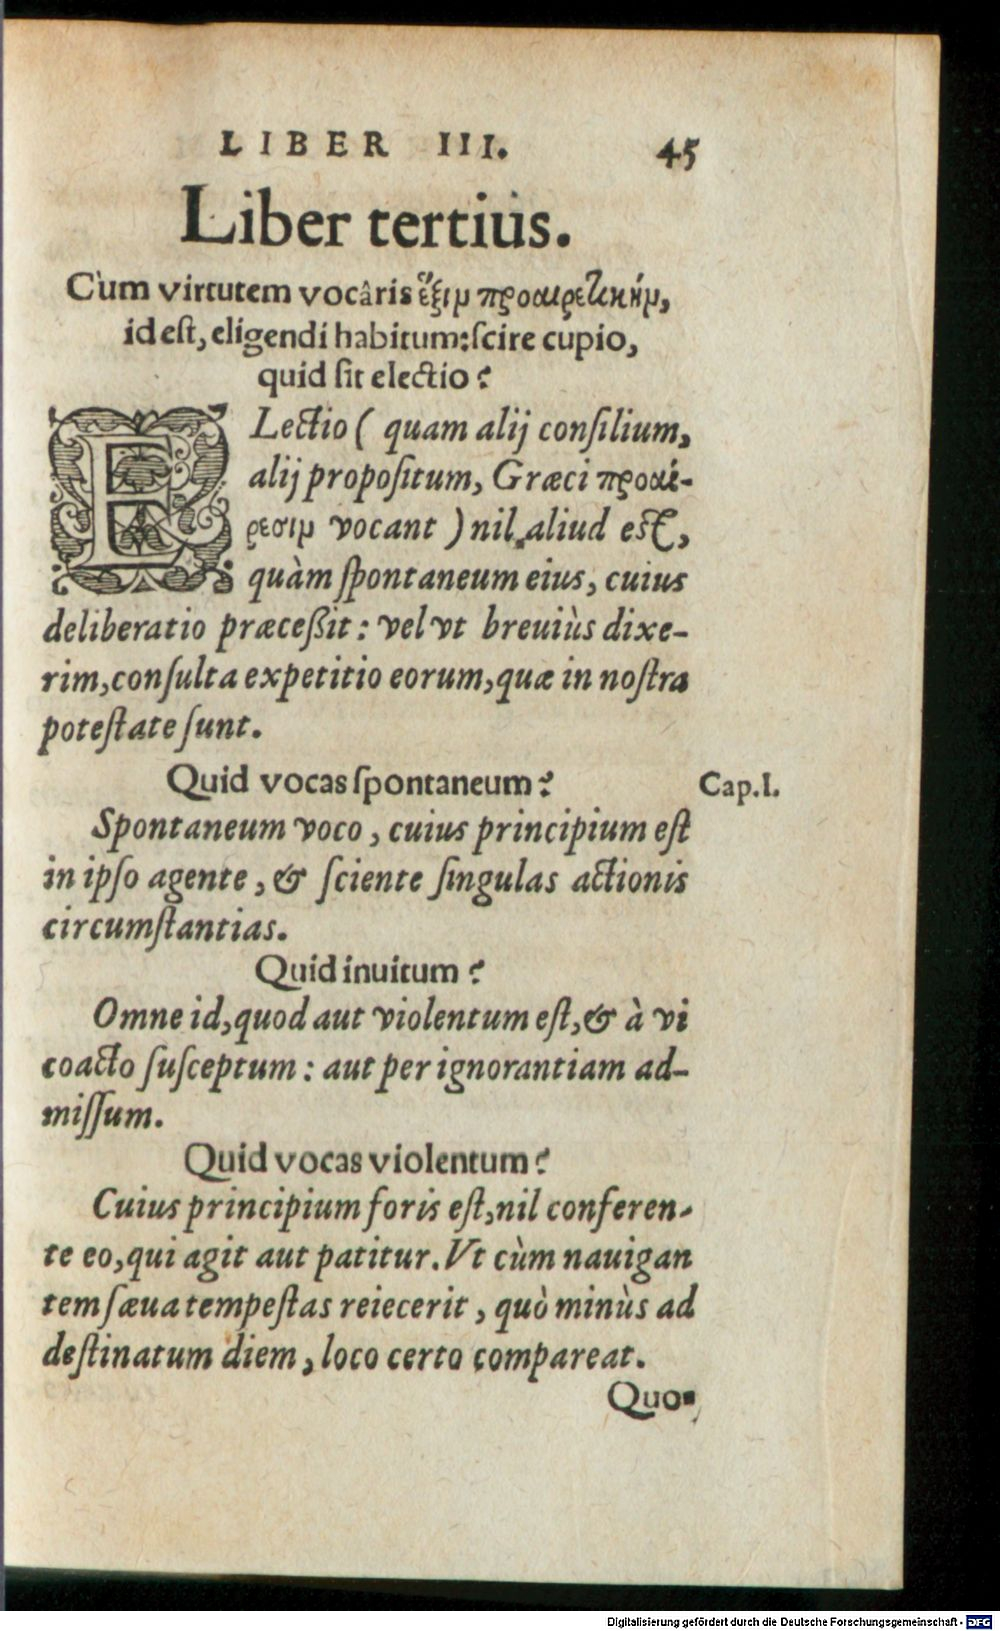 LIBER III. 45
Liber tertius.
Cùm virtutem vocâris ἕξιμ προαιρετικήμ,
id est, eligendi habitum: scire cupio,
quid sit electio?
ELectio ( quam alij consilium,
alij propositum, Græci προαί-
ρεσιμ vocant ) nil aliud est,
quàm spontaneum eius, cuius
deliberatio præceßit: vel vt breuiùs dixe-
rim, consulta expetitio eorum, quæ in nostra
potestate sunt.
Quid vocas spontaneum? Cap. I.
Spontaneum voco, cuius principium est
in ipso agente, & sciente singulas actionis
circumstantias.
Quid inuitum?
Omne id, quod aut violentum est, & à vi
coacto susceptum: aut per ignorantiam ad-
missum.
Quid vocas violentum?
Cuius principium foris est, nil conferen-
te eo, qui agit aut patitur. Vt cùm nauigan
tem sæua tempestas reiecerit, quò minùs ad
destinatum diem, loco certo compareat.
Quo-
Digitalisierung gefördert durch die Deutsche Forschungsgemeinschaft - DFG